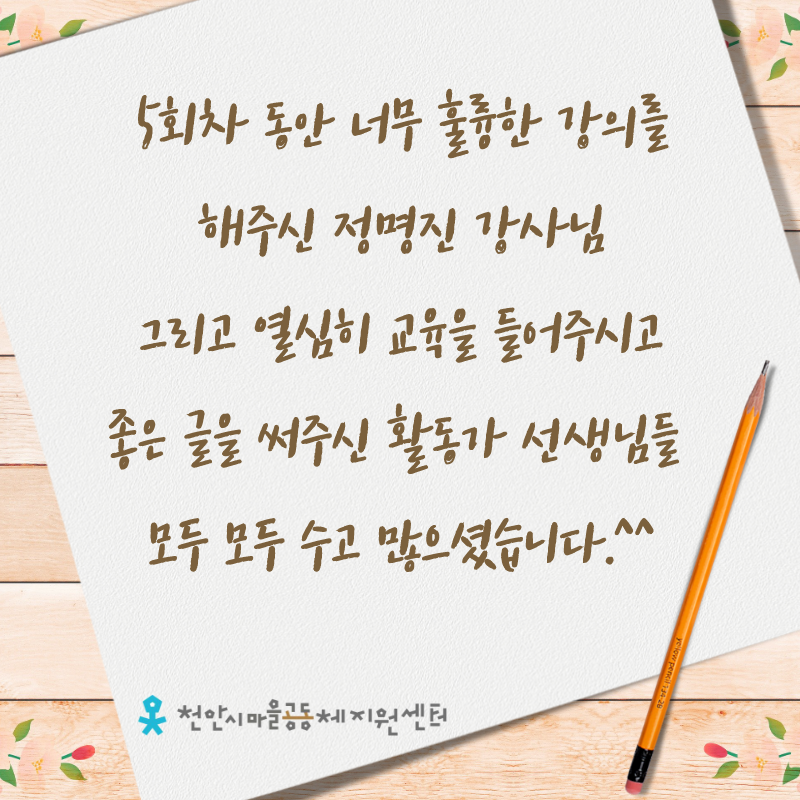 5회차 동안 너무 훌륭한 강의를
해주신 정명진 강사님
그리고 열심히 교육을 들어주시고
좋은 글을 써주신 활동가 선생님들
모두 모두 수고 많으셨습니다.^^
천안시마을공동체지원센터